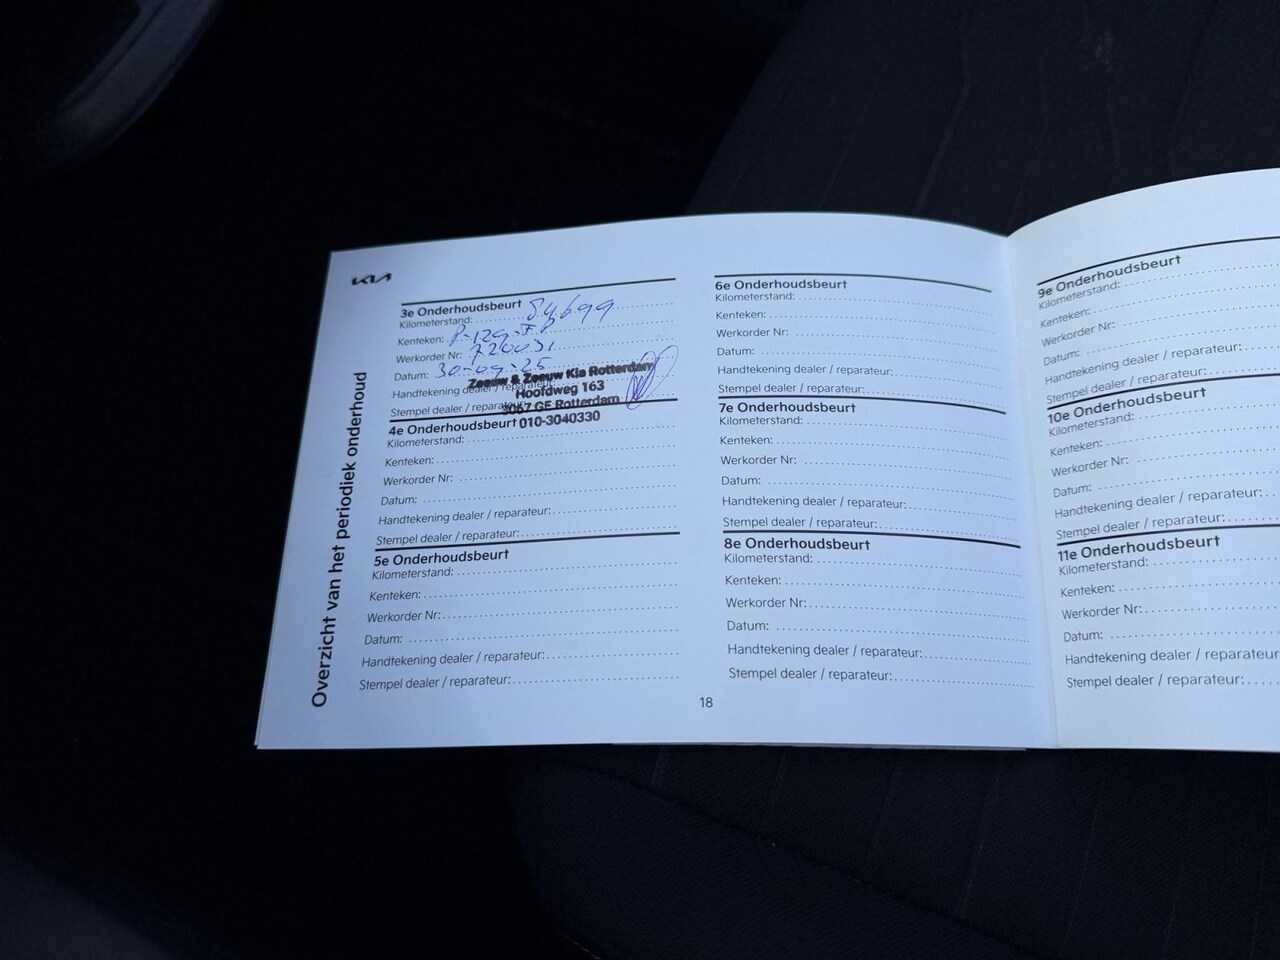 KIA
Overzicht van het periodiek onderhoud
3e Onderhoudsbeurt
Kilometerstand: 54699
Kenteken: P-129-FP
Werkorder Nr: 720031
Datum: 30-09-25
Handtekening dealer / reparateur:
Stempel dealer / reparateur:
Zeeuw & Zeeuw Kia Rotterdam
Hoofdweg 163
3067 GE Rotterdam
010-3040330
4e Onderhoudsbeurt
Kilometerstand:
Kenteken:
Werkorder Nr:
Datum:
Handtekening dealer / reparateur:
Stempel dealer / reparateur:
5e Onderhoudsbeurt
Kilometerstand:
Kenteken:
Werkorder Nr:
Datum:
Handtekening dealer / reparateur:
Stempel dealer / reparateur:
6e Onderhoudsbeurt
Kilometerstand:
Kenteken:
Werkorder Nr:
Datum:
Handtekening dealer / reparateur:
Stempel dealer / reparateur:
7e Onderhoudsbeurt
Kilometerstand:
Kenteken:
Werkorder Nr:
Datum:
Handtekening dealer / reparateur:
Stempel dealer / reparateur:
8e Onderhoudsbeurt
Kilometerstand:
Kenteken:
Werkorder Nr:
Datum:
Handtekening dealer / reparateur:
Stempel dealer / reparateur:
18
9e Onderhoudsbeurt
Kilometerstand:
Kenteken:
Werkorder Nr:
Datum:
Handtekening dealer / reparateur:
Stempel dealer / reparateur:
10e Onderhoudsbeurt
Kilometerstand:
Kenteken:
Werkorder Nr:
Datum:
Handtekening dealer / reparateur:
Stempel dealer / reparateur:
11e Onderhoudsbeurt
Kilometerstand:
Kenteken:
Werkorder Nr:
Datum:
Handtekening dealer / reparateur:
Stempel dealer / reparateur: